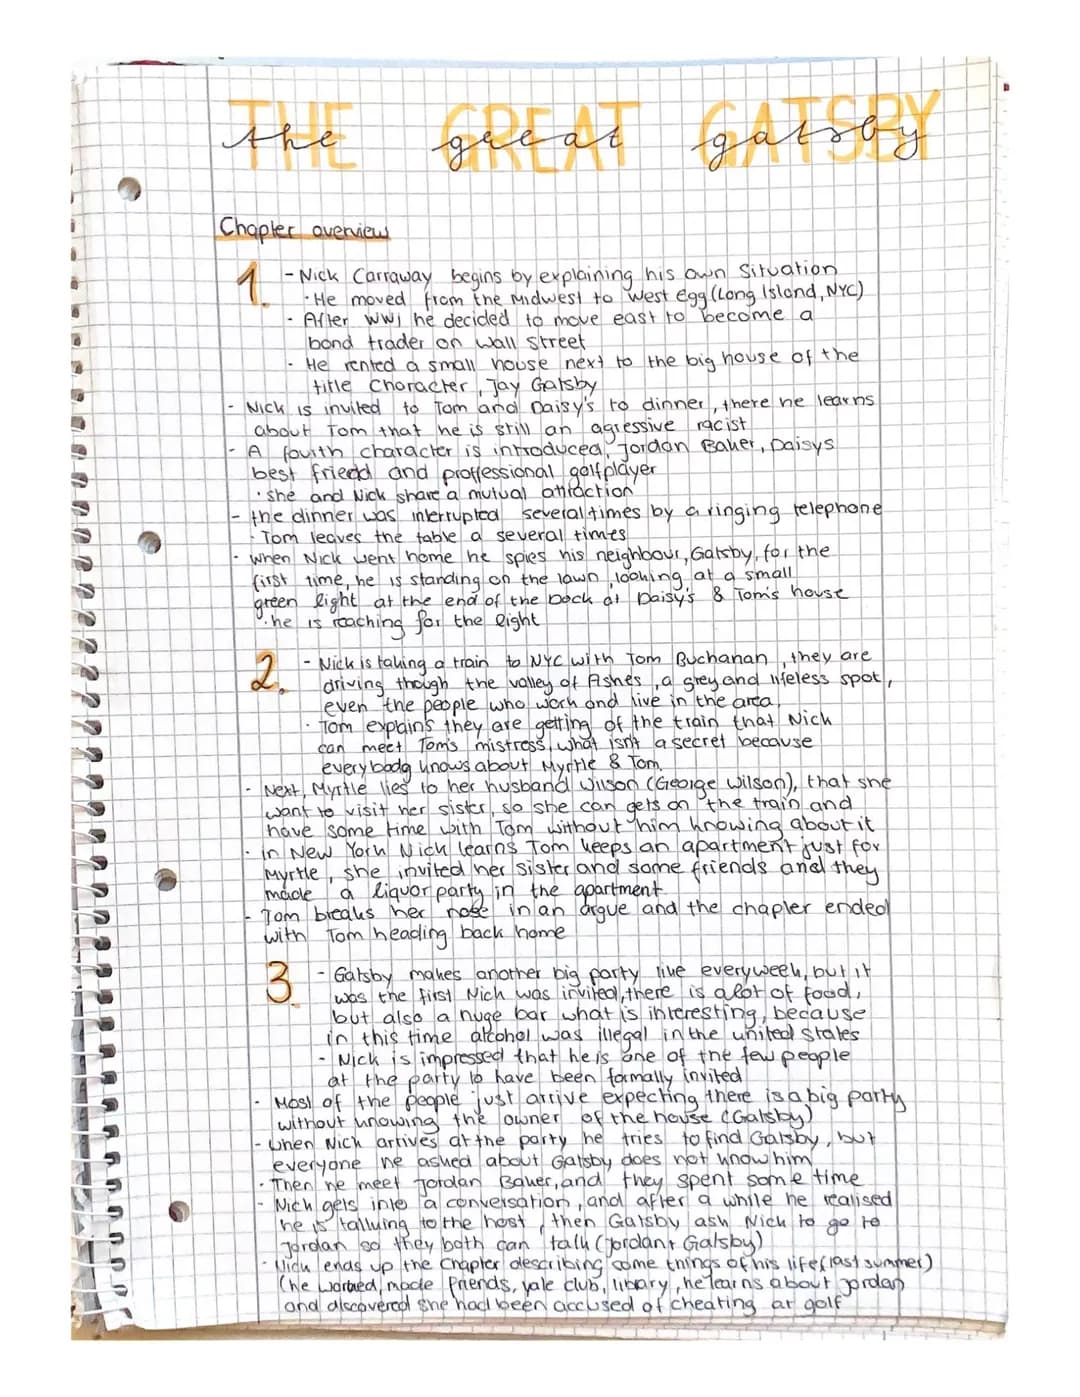 THE GREAT GATSBY
the great gatsby
Chapter overview
1. - Nick Carraway begins by explaining his own Situation
· He moved from the Midwest to West Egg (Long Island, NYC)
- After WW1 he decided to move east to become a
bond trader on Wall Street
· He rented a small house next to the big house of the
title Character, Jay Gatsby
- Nick is invited to Tom and Daisy's to dinner, there he learns
about Tom that he is still an agressive racist
- A fourth character is introduced, Jordan Baker, Daisys
best friend and proffessional golfplayer
· she and Nick share a mutual attraction
- the dinner was interrupted several times by a ringing telephone
· Tom leaves the table a several times
- when Nick went home he spies his neighbour, Gatsby, for the
first time, he is standing on the lawn, looking at a small
green light at the end of the Dock at Daisy's & Tom's house
· he is reaching for the light
2. - Nick is taking a train to NYC with Tom Buchanan, they are
driving though the valley of Ashes, a grey and lifeless spot,
even the people who work and live in the area,
· Tom expains they are getting of the train that Nick
can meet Tom's mistress, what isn't a secret because
everybody knows about Myrtle & Tom,
· Next, Myrtle lies to her husband Wilson (George Wilson), that she
want to visit her sister, so she can gets on the train and
have some time with Tom without him knowing about it
- in New York Nick learns Tom keeps an apartment just for
Myrtle, she invited her Sister and some friends and they
made a liquor party in the apartment
- Tom breaks her nose in an argue and the chapter ended
with Tom heading back home
3. - Gatsby makes another big party like everyweek, but it
was the first Nick was invited, there is alot of food,
but also a huge bar what is interesting, because
in this time alcohol was illegal in the united states
- Nick is impressed that he is one of the few people
at the party to have been formally invited
- Most of the people just arrive expecting there is a big party
without knowing the owner of the house (Gatsby)
- when Nick arrives at the party he tries to find Gatsby, but
everyone he asked about Gatsby does not know him
· Then he meet Jordan Baker, and they spent some time
- Nick gets into a conversation, and after a while he realised
he is talking to the host, then Gatsby ask Nick to go to
Jordan so they both can talk (Jordan + Gatsby)
· Nick ends up the chapter describing some things of his life (last summer)
(he worked, made friends, yale club, libary, he learns about Jordan
and discovered she had been accused of cheating at golf